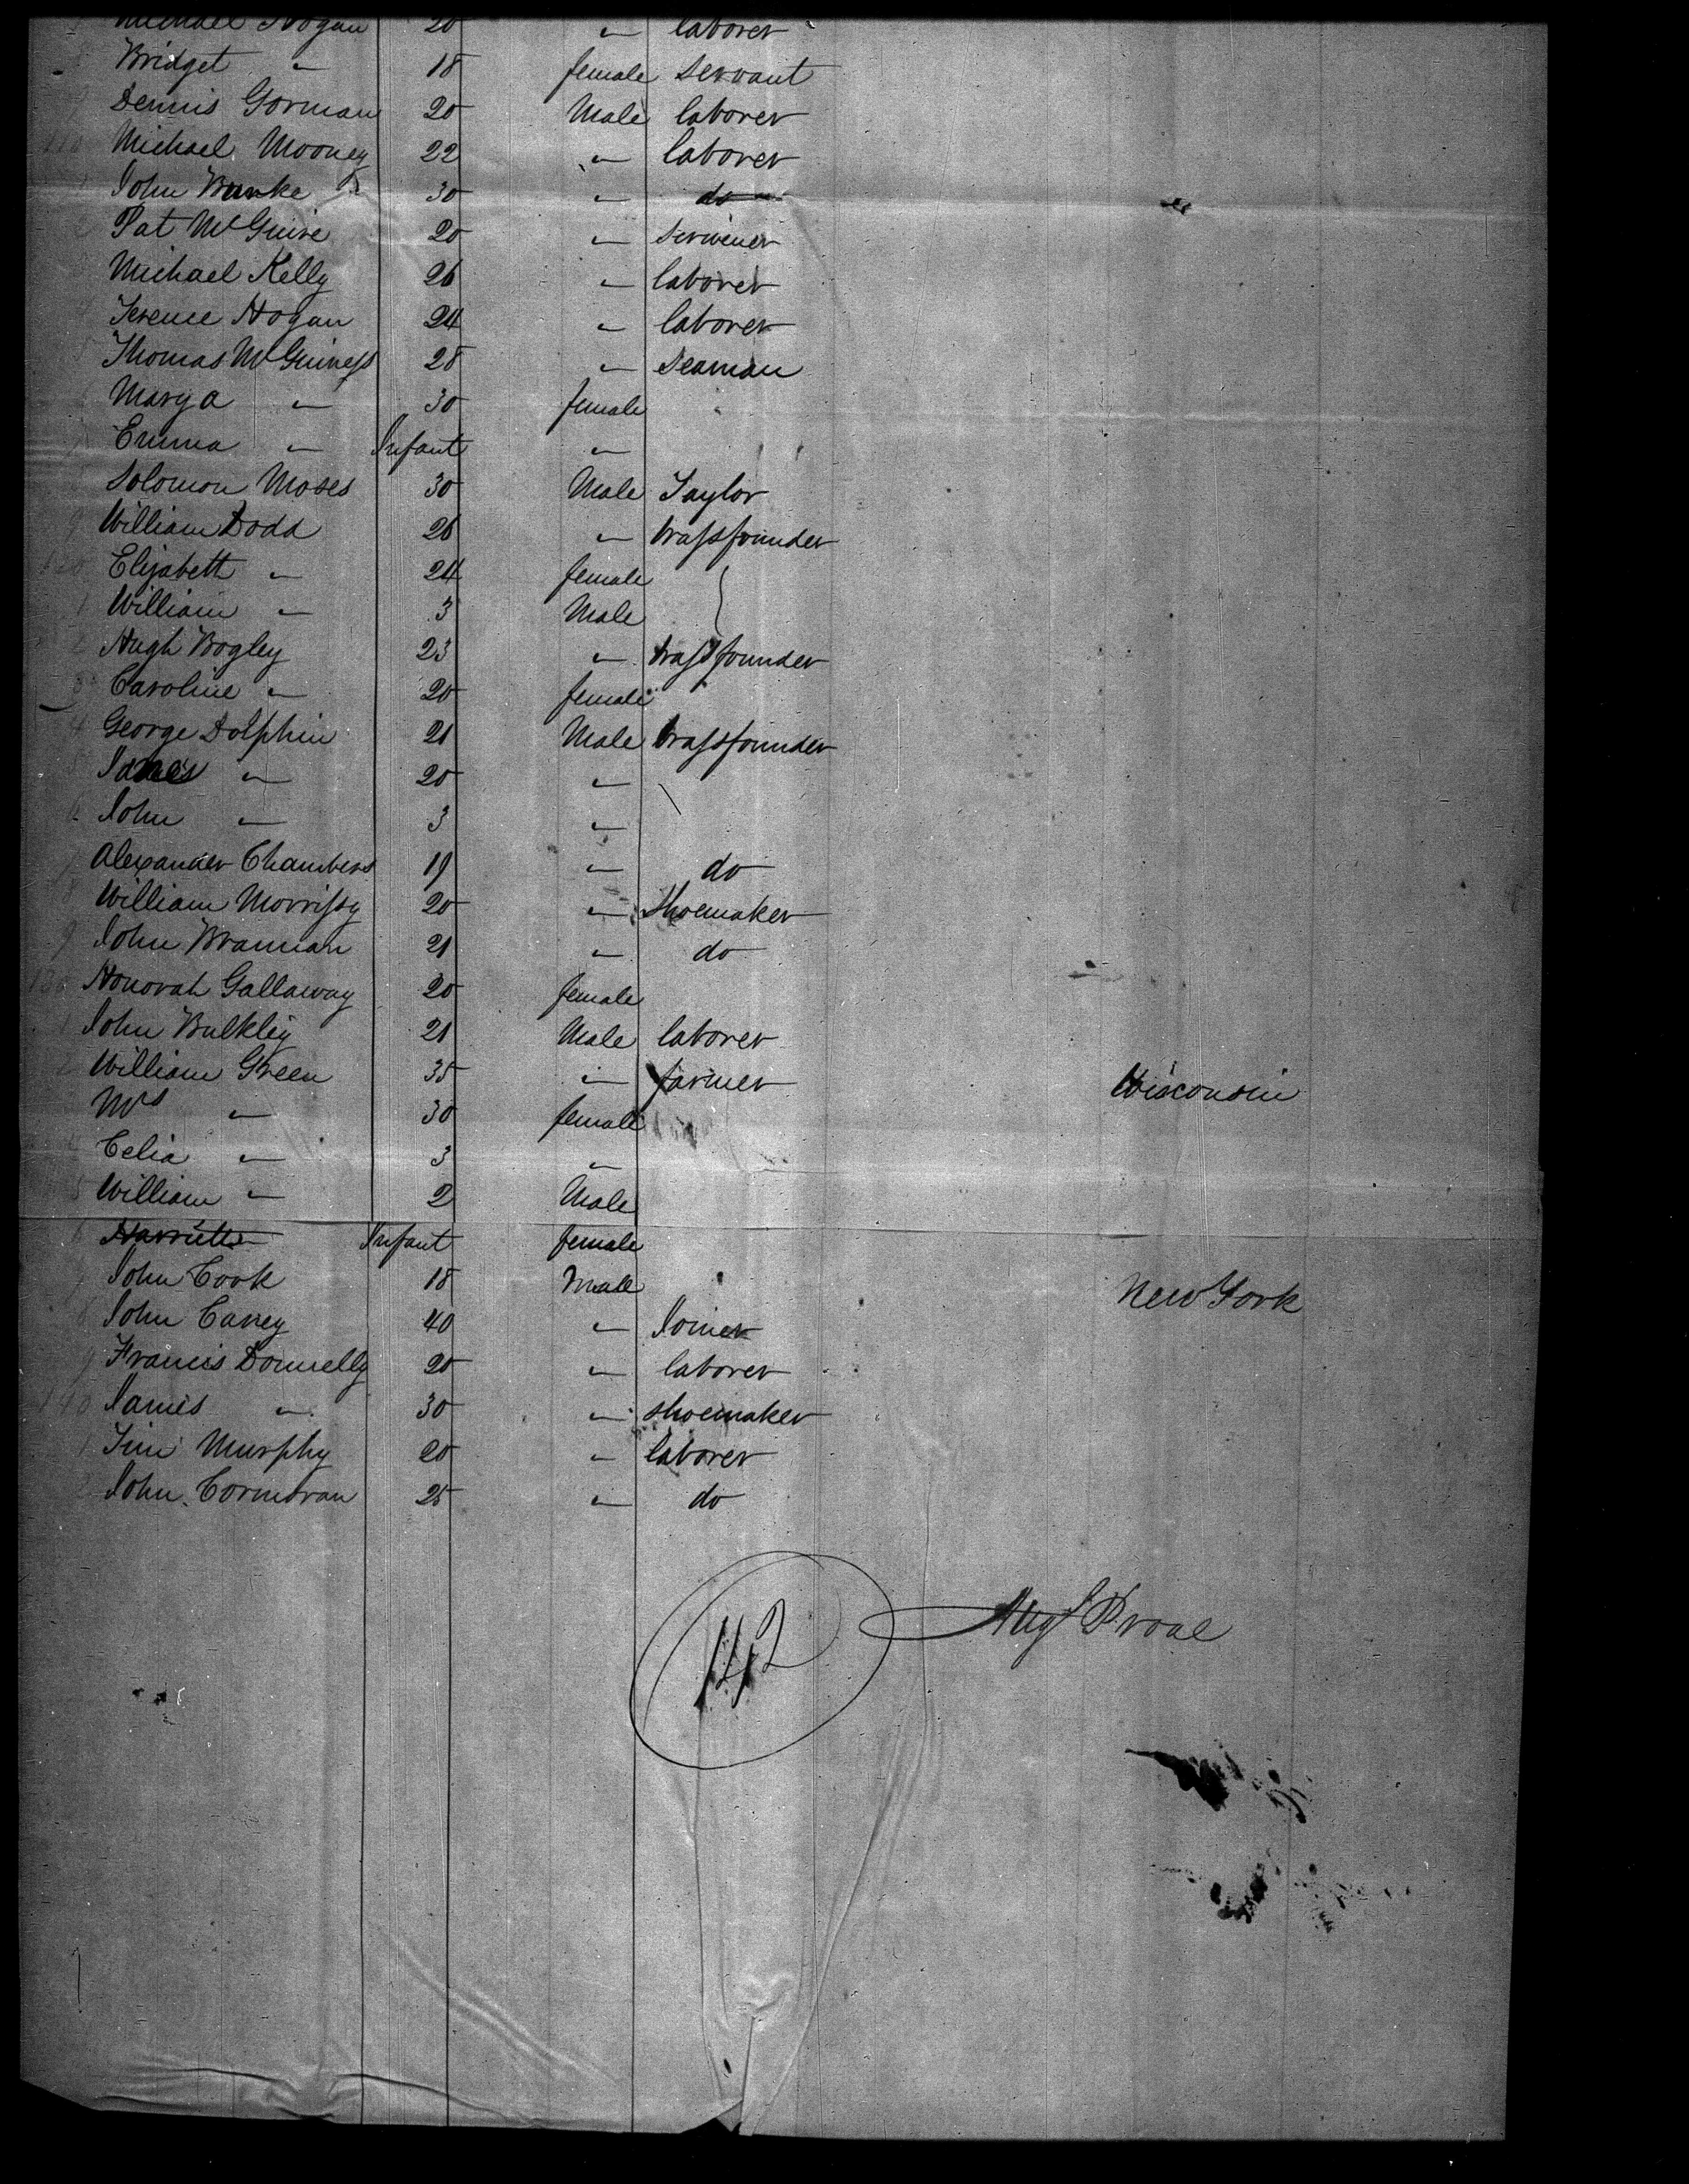 Michael Hogan 20 " laborer
8 Bridget " 18 female servant
9 Dennis Gorman 20 Male laborer
110 Michael Mooney 22 " laborer
1 John Burke 30 " do
2 Pat McGuire 20 " scrivener
3 Michael Kelly 26 " laborer
4 Terence Hogan 24 " laborer
5 Thomas McGuiness 28 " Seaman
6 Mary a " 30 female
7 Emma " Infant "
8 Solomon Moses 30 Male Taylor
9 William Dodd 26 " brassfounder
120 Elizabeth " 24 female
1 William " 3 Male
2 Hugh Bogley 23 " brassfounder
3 Caroline " 20 female
4 George Dolphin 21 Male brassfounder
5 James " 20 "
6 John " 3 "
7 Alexander Chambers 19 " do
8 William Morrissy 20 " Shoemaker
9 John Brannan 21 " do
130 Honorah Gallaway 20 female
1 John Bulkley 21 Male laborer
2 William Green 35 " farmer Wisconsin
3 Mrs " 30 female
4 Celia " 3 "
5 William " 2 Male
6 Harriett " Infant female
7 John Cook 18 Male New York
8 John Carey 40 " Joiner
9 Francis Donnelly 20 " laborer
140 James " 30 " shoemaker
1 Tim Murphy 20 " laborer
2 John Cormoran 25 " do
142 Proal